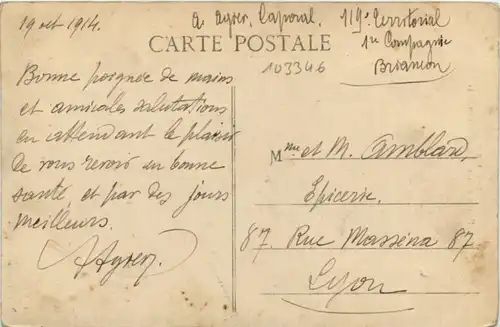 19 oct 1914.
A. Ayrer, Caporal. 119e Territorial
1re Compagnie
Briançon
CARTE POSTALE
103346
Bonne poignée de mains
et amicales salutations
en attendant le plaisir
de vous revoir en bonne
santé, et par des jours
meilleurs.
AAyrer
Mme et M. Amblard,
Epicerie.
87. Rue Masséna 87
Lyon